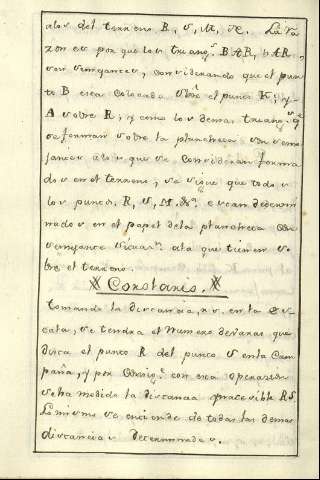 alos del terreno R, S, M, &c. La ra
zon es por que los triang.s BAR, bAR
son semejantes, considerando que el pun
to B esta colocado sobre el punto K, y
A sobre R; y como los demas triang.s q.e
se forman sobre la plancheta son seme
jantes alos que se consideran forma
dos en el terreno, se sigue que todos
los puntos R, S, M, &c. estan determi
nados en el papel dela plancheta con
semejante situac.n ala que tienen so
bre el terreno.
Constares.
tomando la distancia, r s en la es
cala, se tendra el numero de varas que
dista el punto R del punto S en la cam
paña, y por consig.te con esta operacion
se ha medido la distancia inaccesible RS.
Lo mismo se entiende de todas las demas
distancias determinadas.